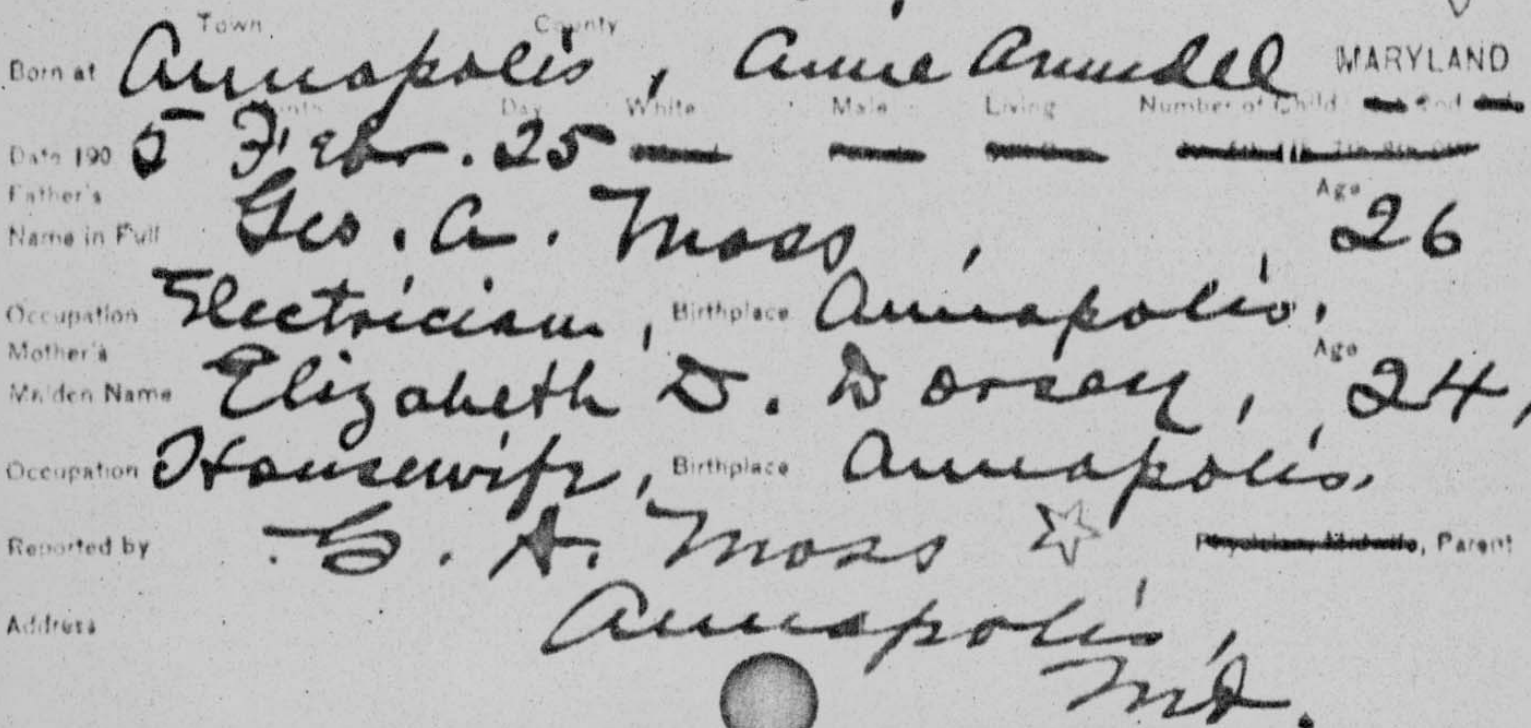 Town County
Born at Annapolis, Anne Arundel MARYLAND
Month Day White Male Living Number of Child 2nd
Date 190 5 Febr. 25
Father's Age
Name in Full Geo. A. Moss, , 26
Occupation Electrician, Birthplace Annapolis,
Mother's Age
Maiden Name Elizabeth D. Dorsey, , 24,
Occupation Housewife, Birthplace Annapolis.
Reported by G. A. Moss ☆ Physician, Midwife, Parent
Address Annapolis,
Md.